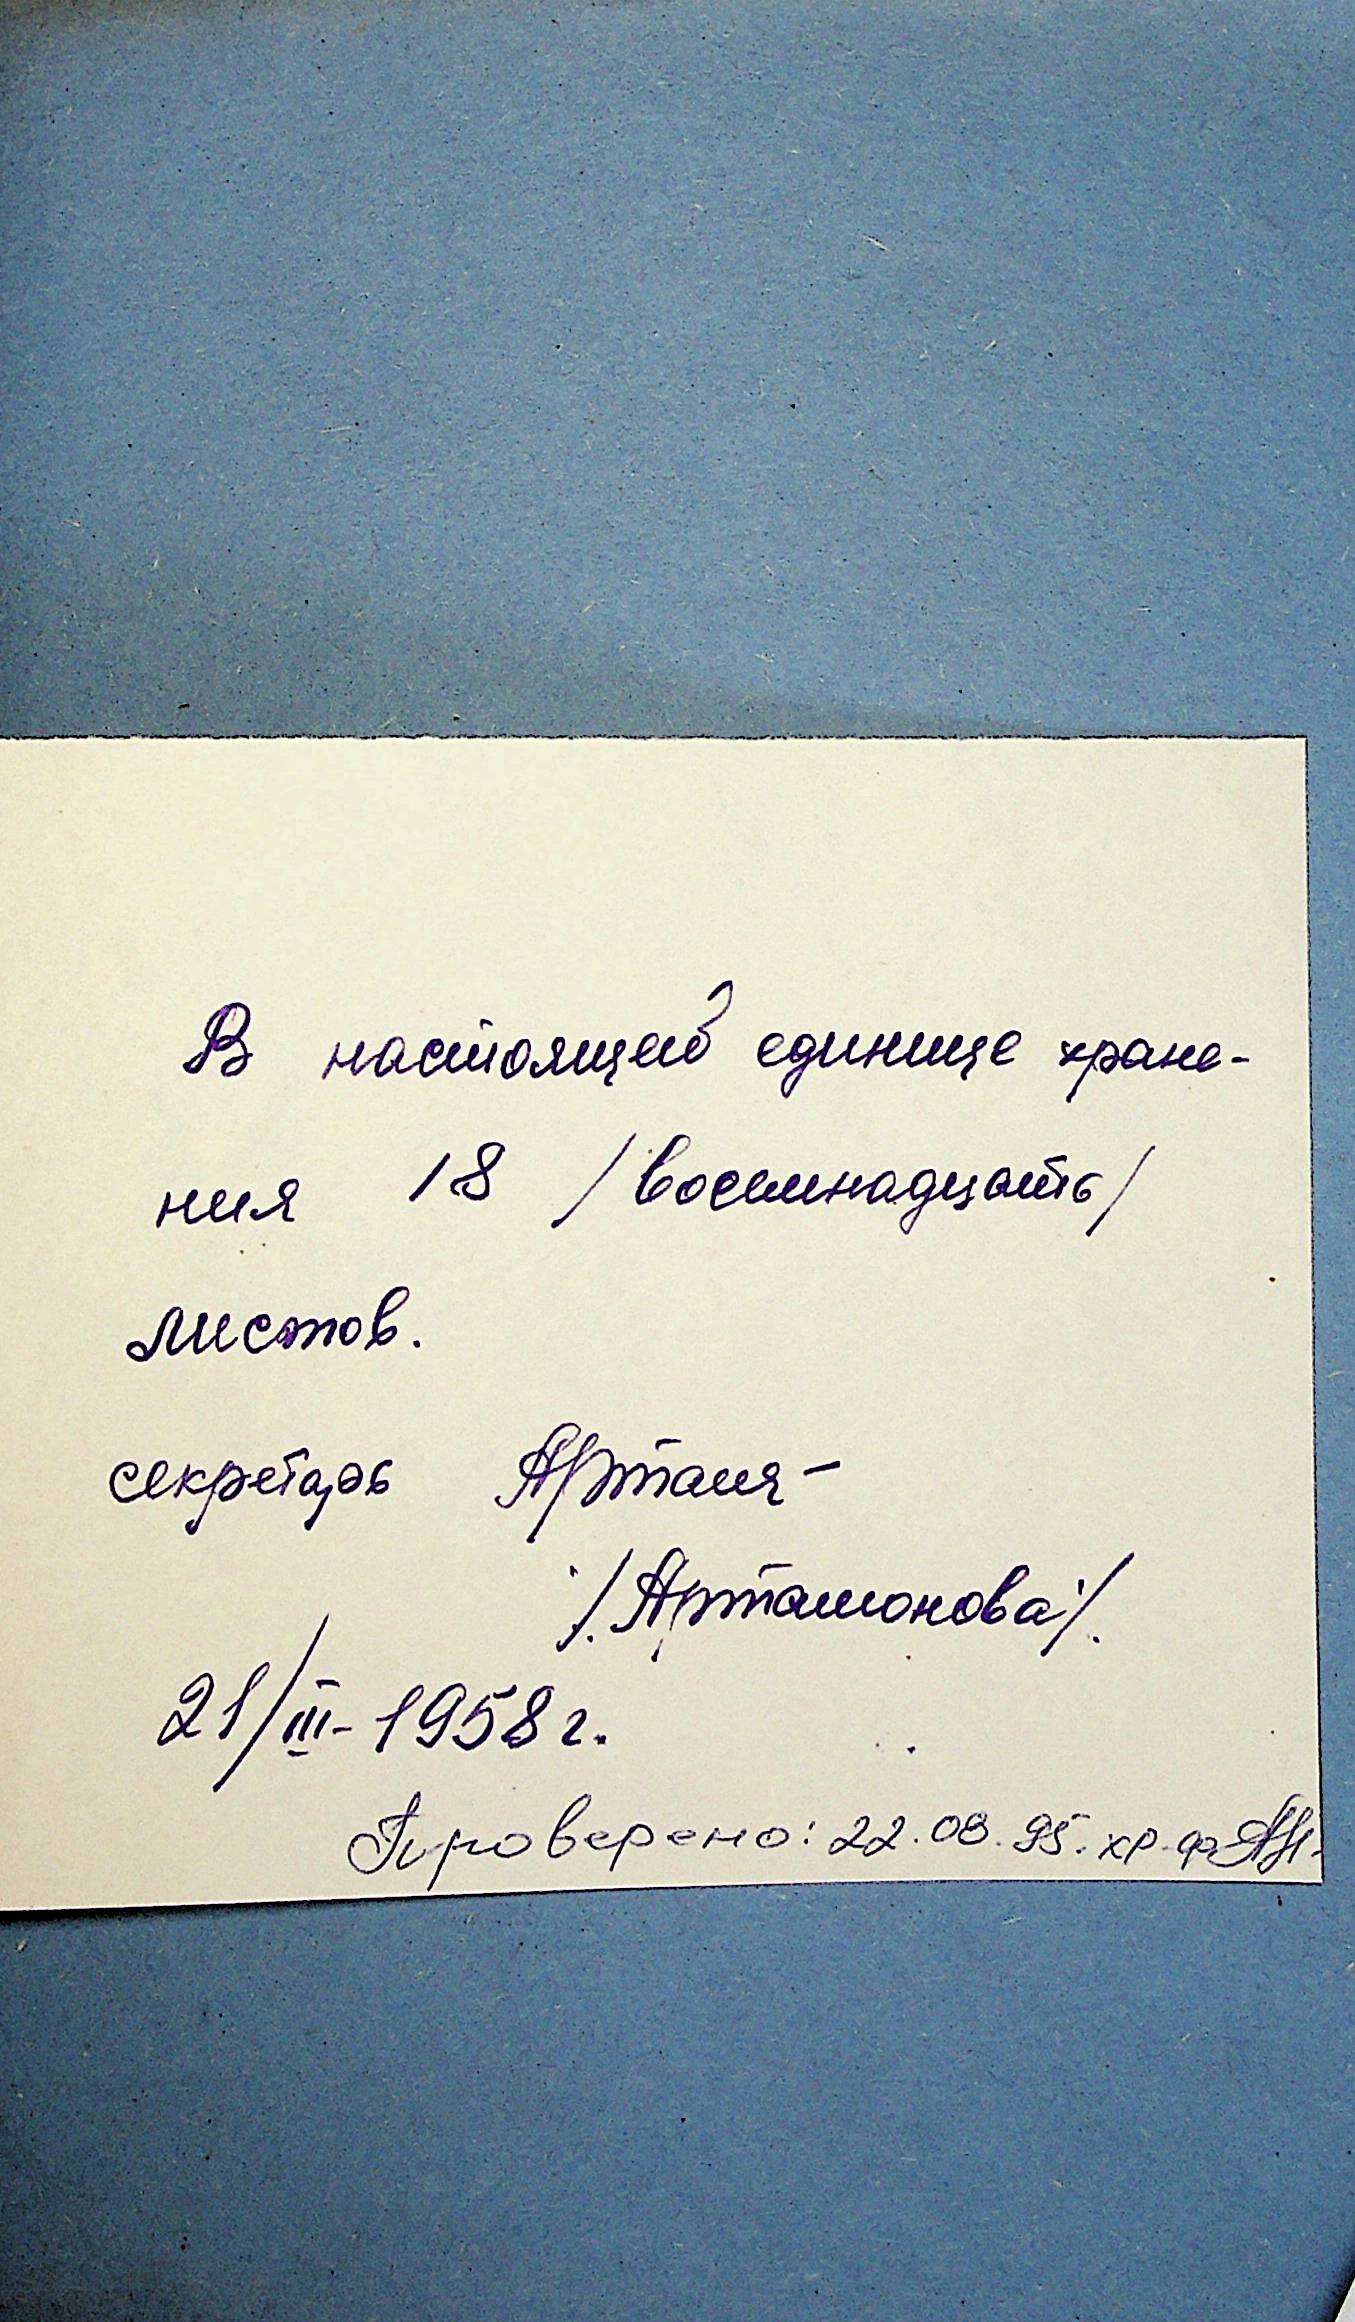 В настоящей единице хране-
ния 18 /восемнадцать/
листов.
секретарь
/.Артамонова/.
21/III-1958 г.
Проверено: 22.08.95. хр. ф